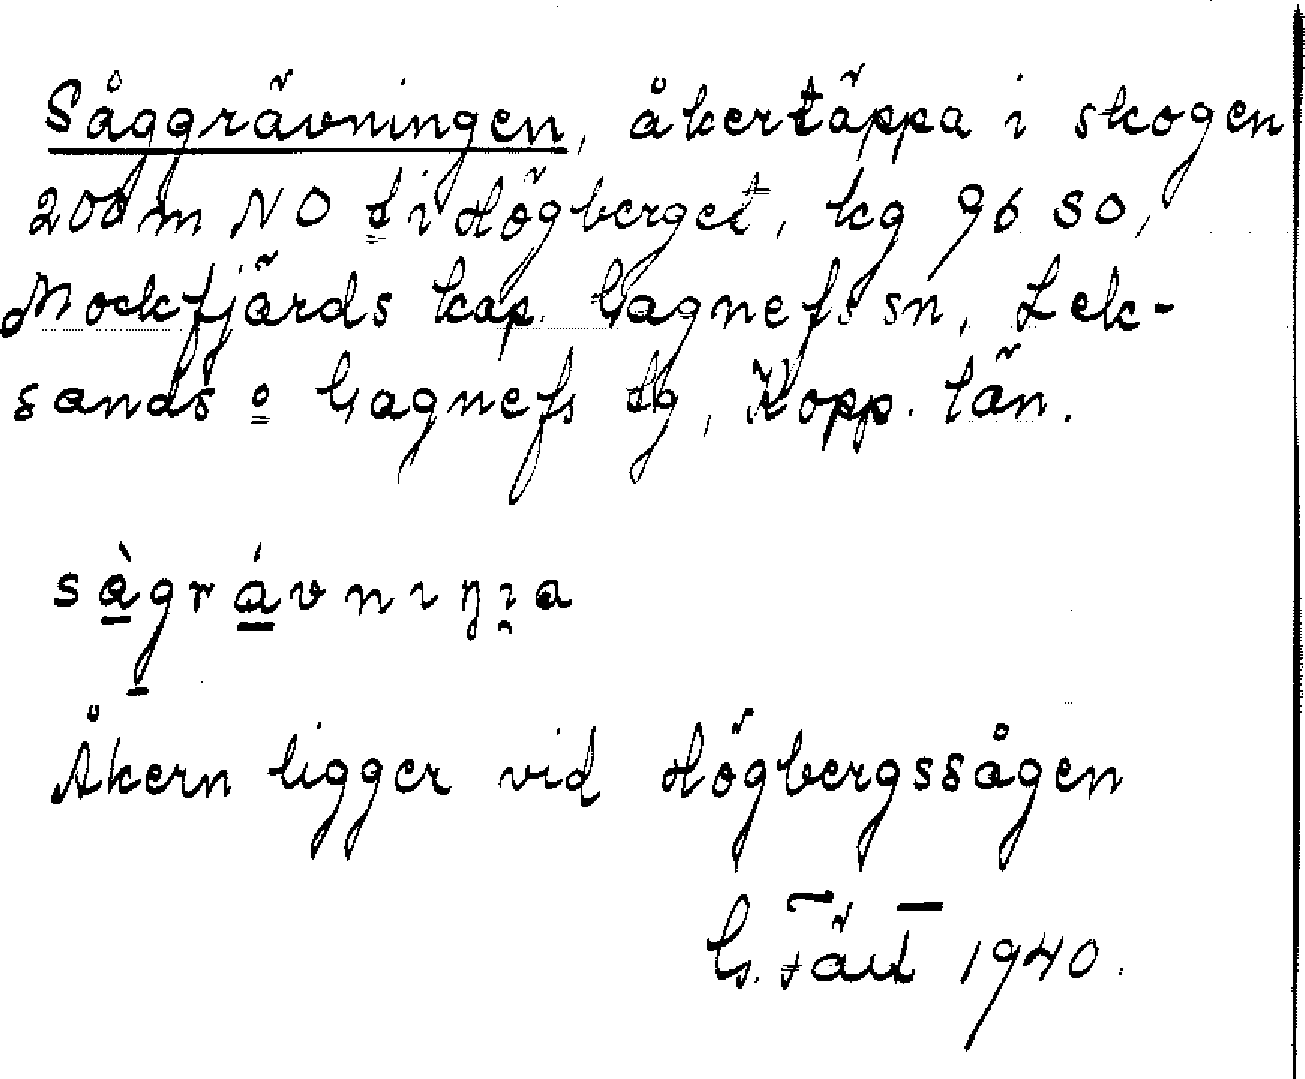 Såggrävningen, åkertäppa i skogen
200 m NO i Högberget, kg 96 SO,
Mockfjärds kap. Gagnefs sn, Lek-
sands o Gagnefs tg, Kopp. län.
sàgrávnıŋı̯a
Åkern ligger vid Högbergssågen
G. 1940.